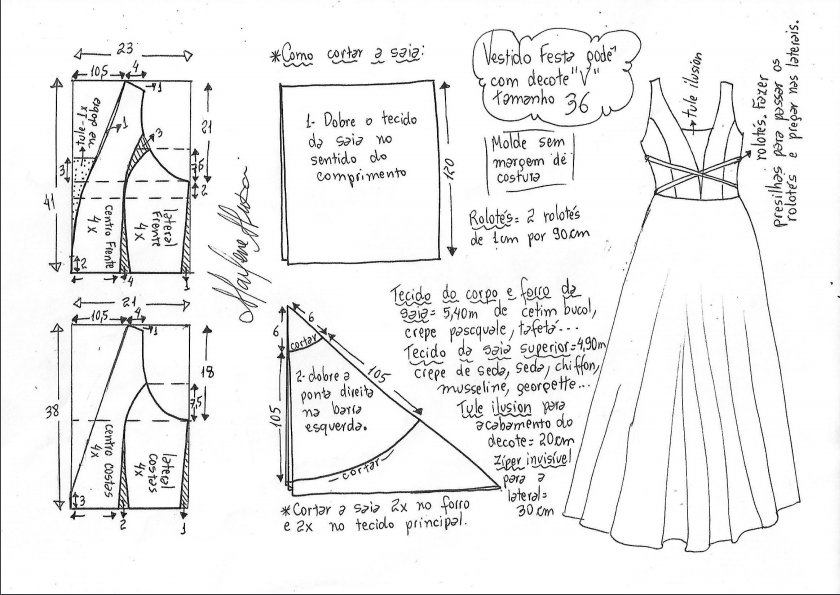 23
10,5
4
1
1
tule-1x
na dobra
3
21
3
7,5
2
41
centro Frente
4x
lateral
Frente
4x
2
4
1
21
10,5
4
1
18
7,5
38
centro Costas
4x
lateral
Costas
4x
3
2
1
Marlene Mukai
*Como cortar a saia:
1- Dobre o tecido
da saia no
sentido do
comprimento
120
6
6
cortar
105
105
2-dobre a
ponta direita
na barra
esquerda.
cortar
*Cortar a saia 2x no forro
e 2x no tecido principal.
Vestido Festa pode
com decote "V"
tamanho 36
Molde sem
margem de
costura
Rolotés= 2 rolotés
de 1cm por 90cm
Tecido do corpo e forro da
saia= 5,40m de cetim bucol,
crepe pascquale, tafetá...
Tecido da saia superior=4,90m
crepe de seda, seda, chiffon,
musseline, georgette...
Tule ilusion para
acabamento do
decote= 20cm
Zíper invisível
para a
lateral=
30cm
tule ilusion
rolotés. Fazer
presilhas para passar os
rolotés e pregar nas laterais.